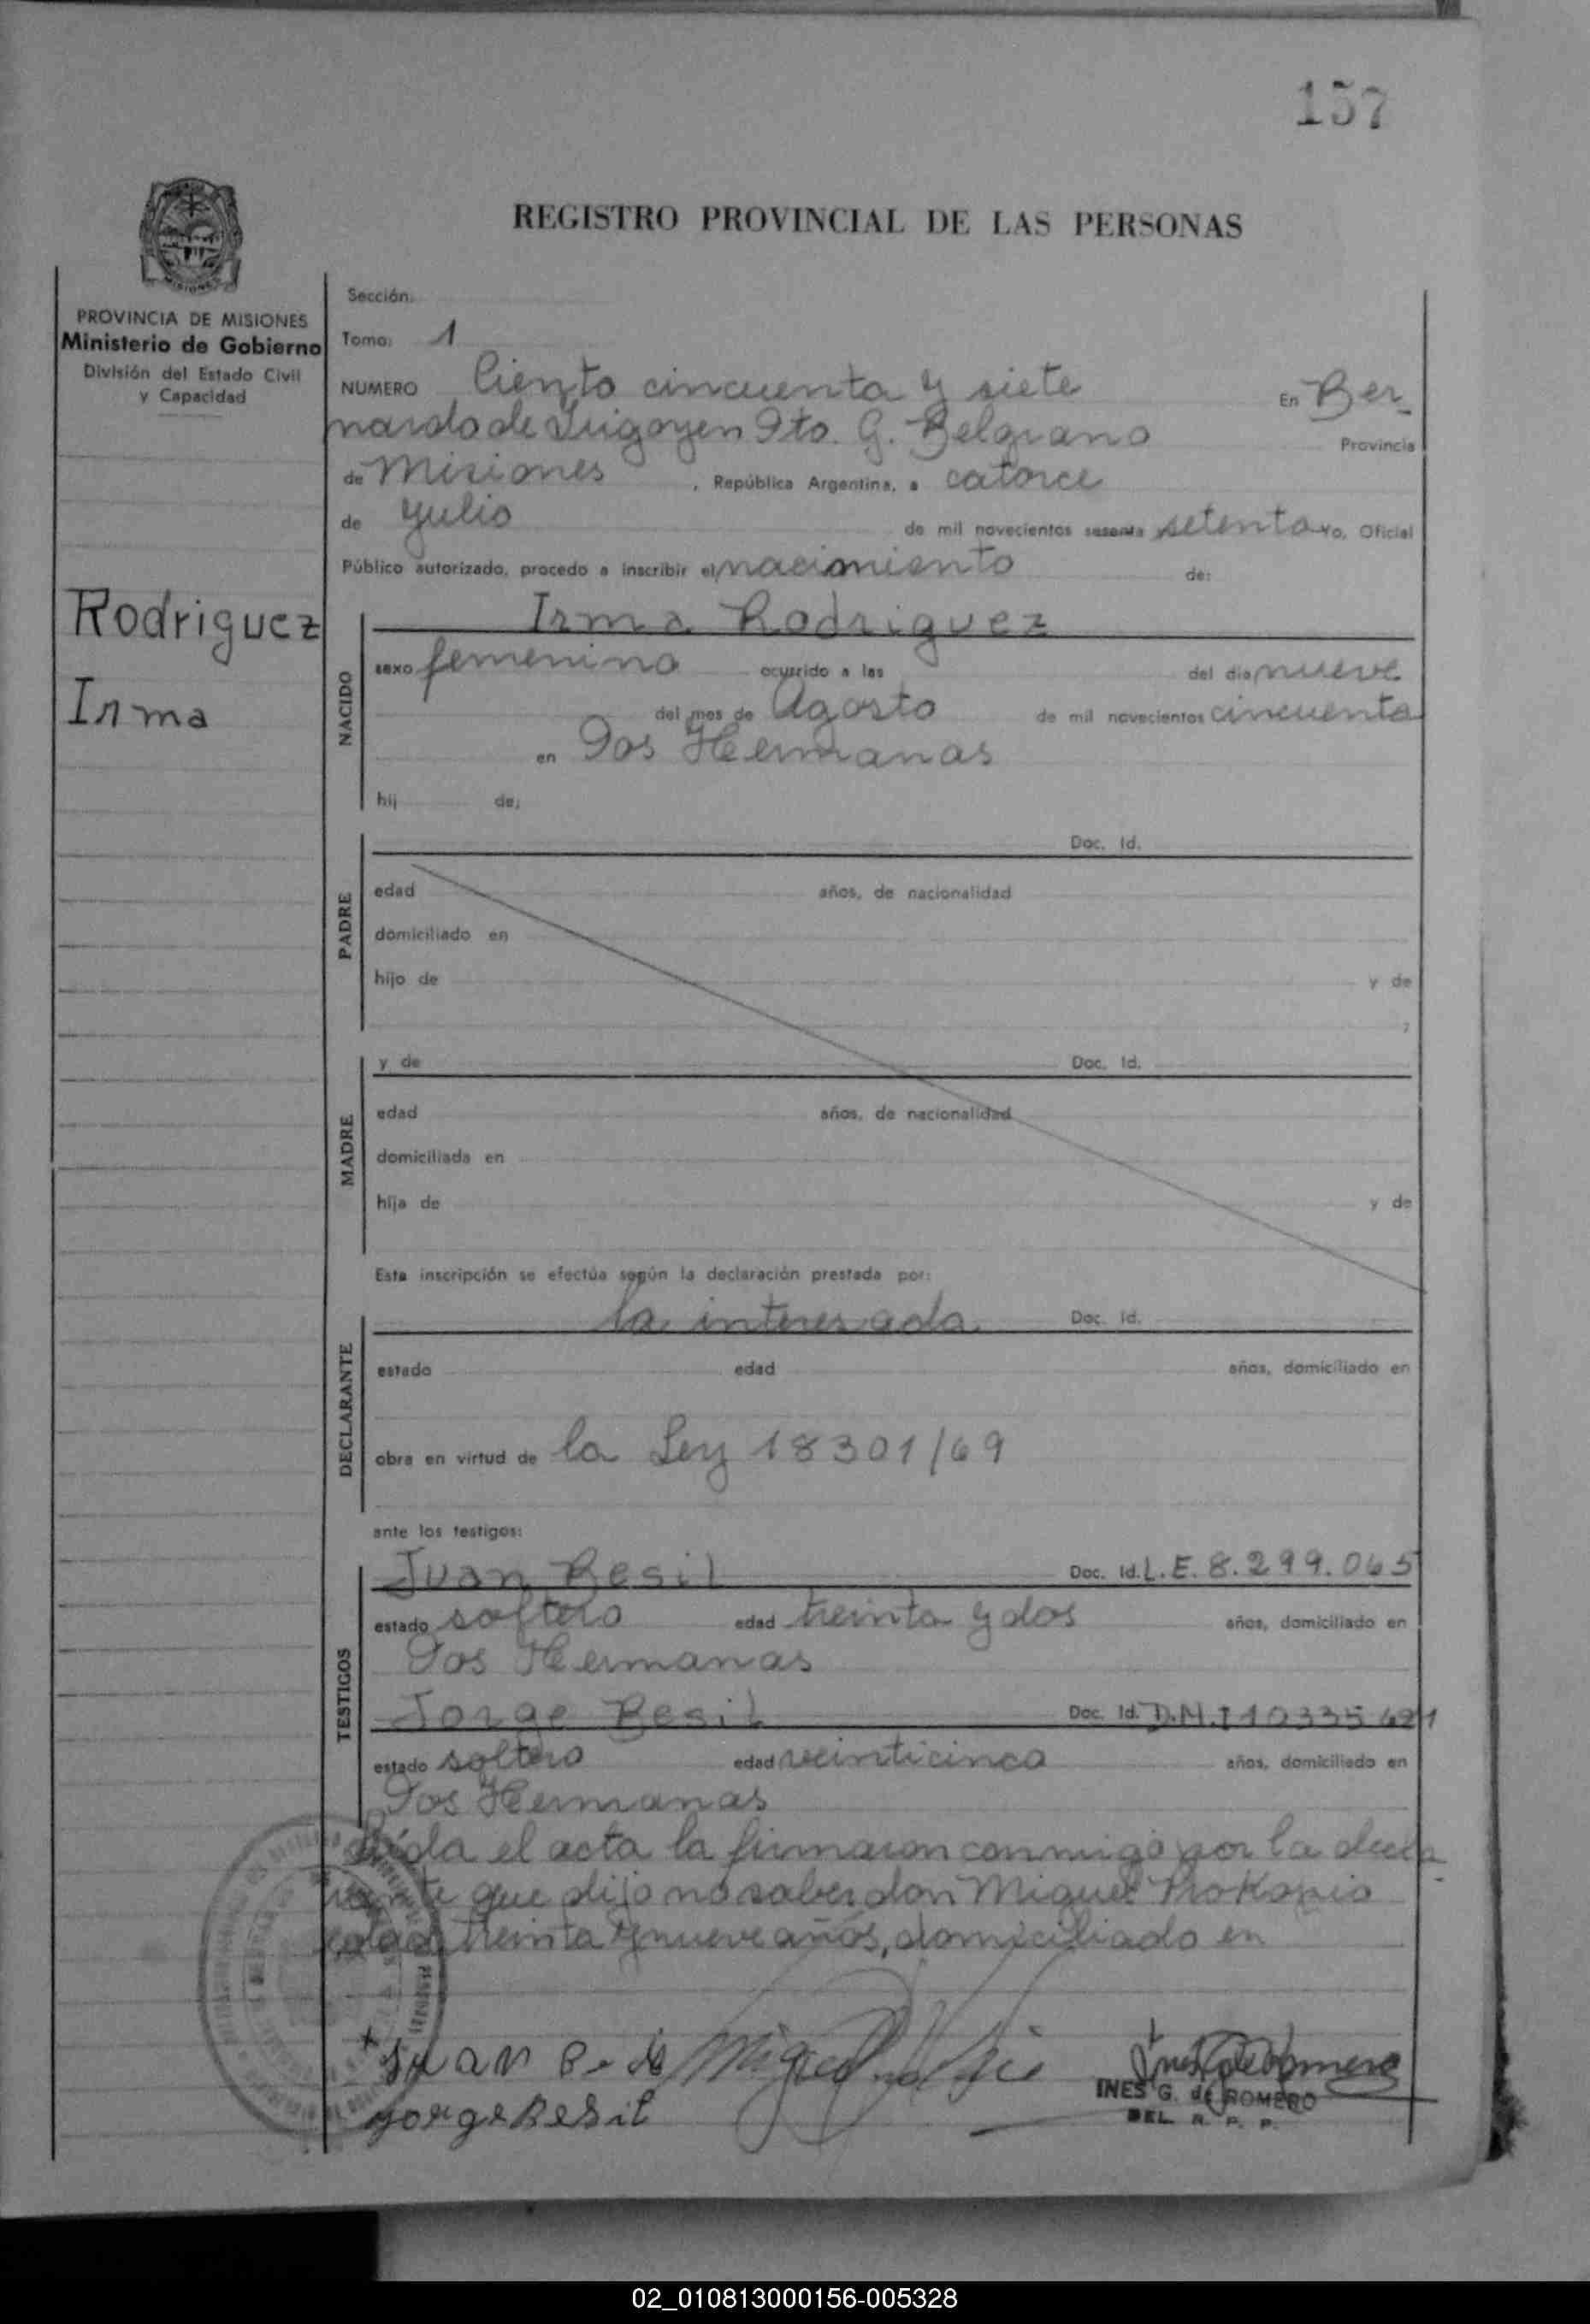 157
REGISTRO PROVINCIAL DE LAS PERSONAS
MISIONES
PROVINCIA DE MISIONES
Ministerio de Gobierno
División del Estado Civil
y Capacidad
Rodriguez
Irma
Sección:
Tomo: 1
NUMERO Ciento cincuenta y siete En Ber
nardo de Irigoyen Dto. G. Belgrano Provincia
de Misiones , República Argentina, a catorce
de Julio de mil novecientos sesenta setenta Yo, Oficial
Público autorizado, procedo a inscribir el nacimiento de:
NACIDO
Irma Rodriguez
sexo femenino ocurrido a las del día nueve
del mes de Agosto de mil novecientos cincuenta
en Dos Hermanas
hij de:
PADRE
Doc. Id.
edad años, de nacionalidad
domiciliado en
hijo de y de
;
MADRE
y de Doc. Id.
edad años, de nacionalidad
domiciliada en
hija de y de
Esta inscripción se efectúa según la declaración prestada por:
DECLARANTE
la interesada Doc. Id.
estado edad años, domiciliado en
obra en virtud de la Ley 18301/69
ante los testigos:
TESTIGOS
Juan Besil Doc. Id. L.E. 8.299.065
estado soltero edad treinta y dos años, domiciliado en
Dos Hermanas
Jorge Besil Doc. Id. D.N.I 10335
estado soltero edad veinticinco años, domiciliado en
Dos Hermanas
Leída el acta la firmaron conmigo por la decla
rante que dijo no saber don Miguel Prokopio
edad treinta y nueve años, domiciliado en
Juan
Miguel
Jorge Besil
INES G. de ROMERO
DEL. R. P. P.
02_010813000156-005328